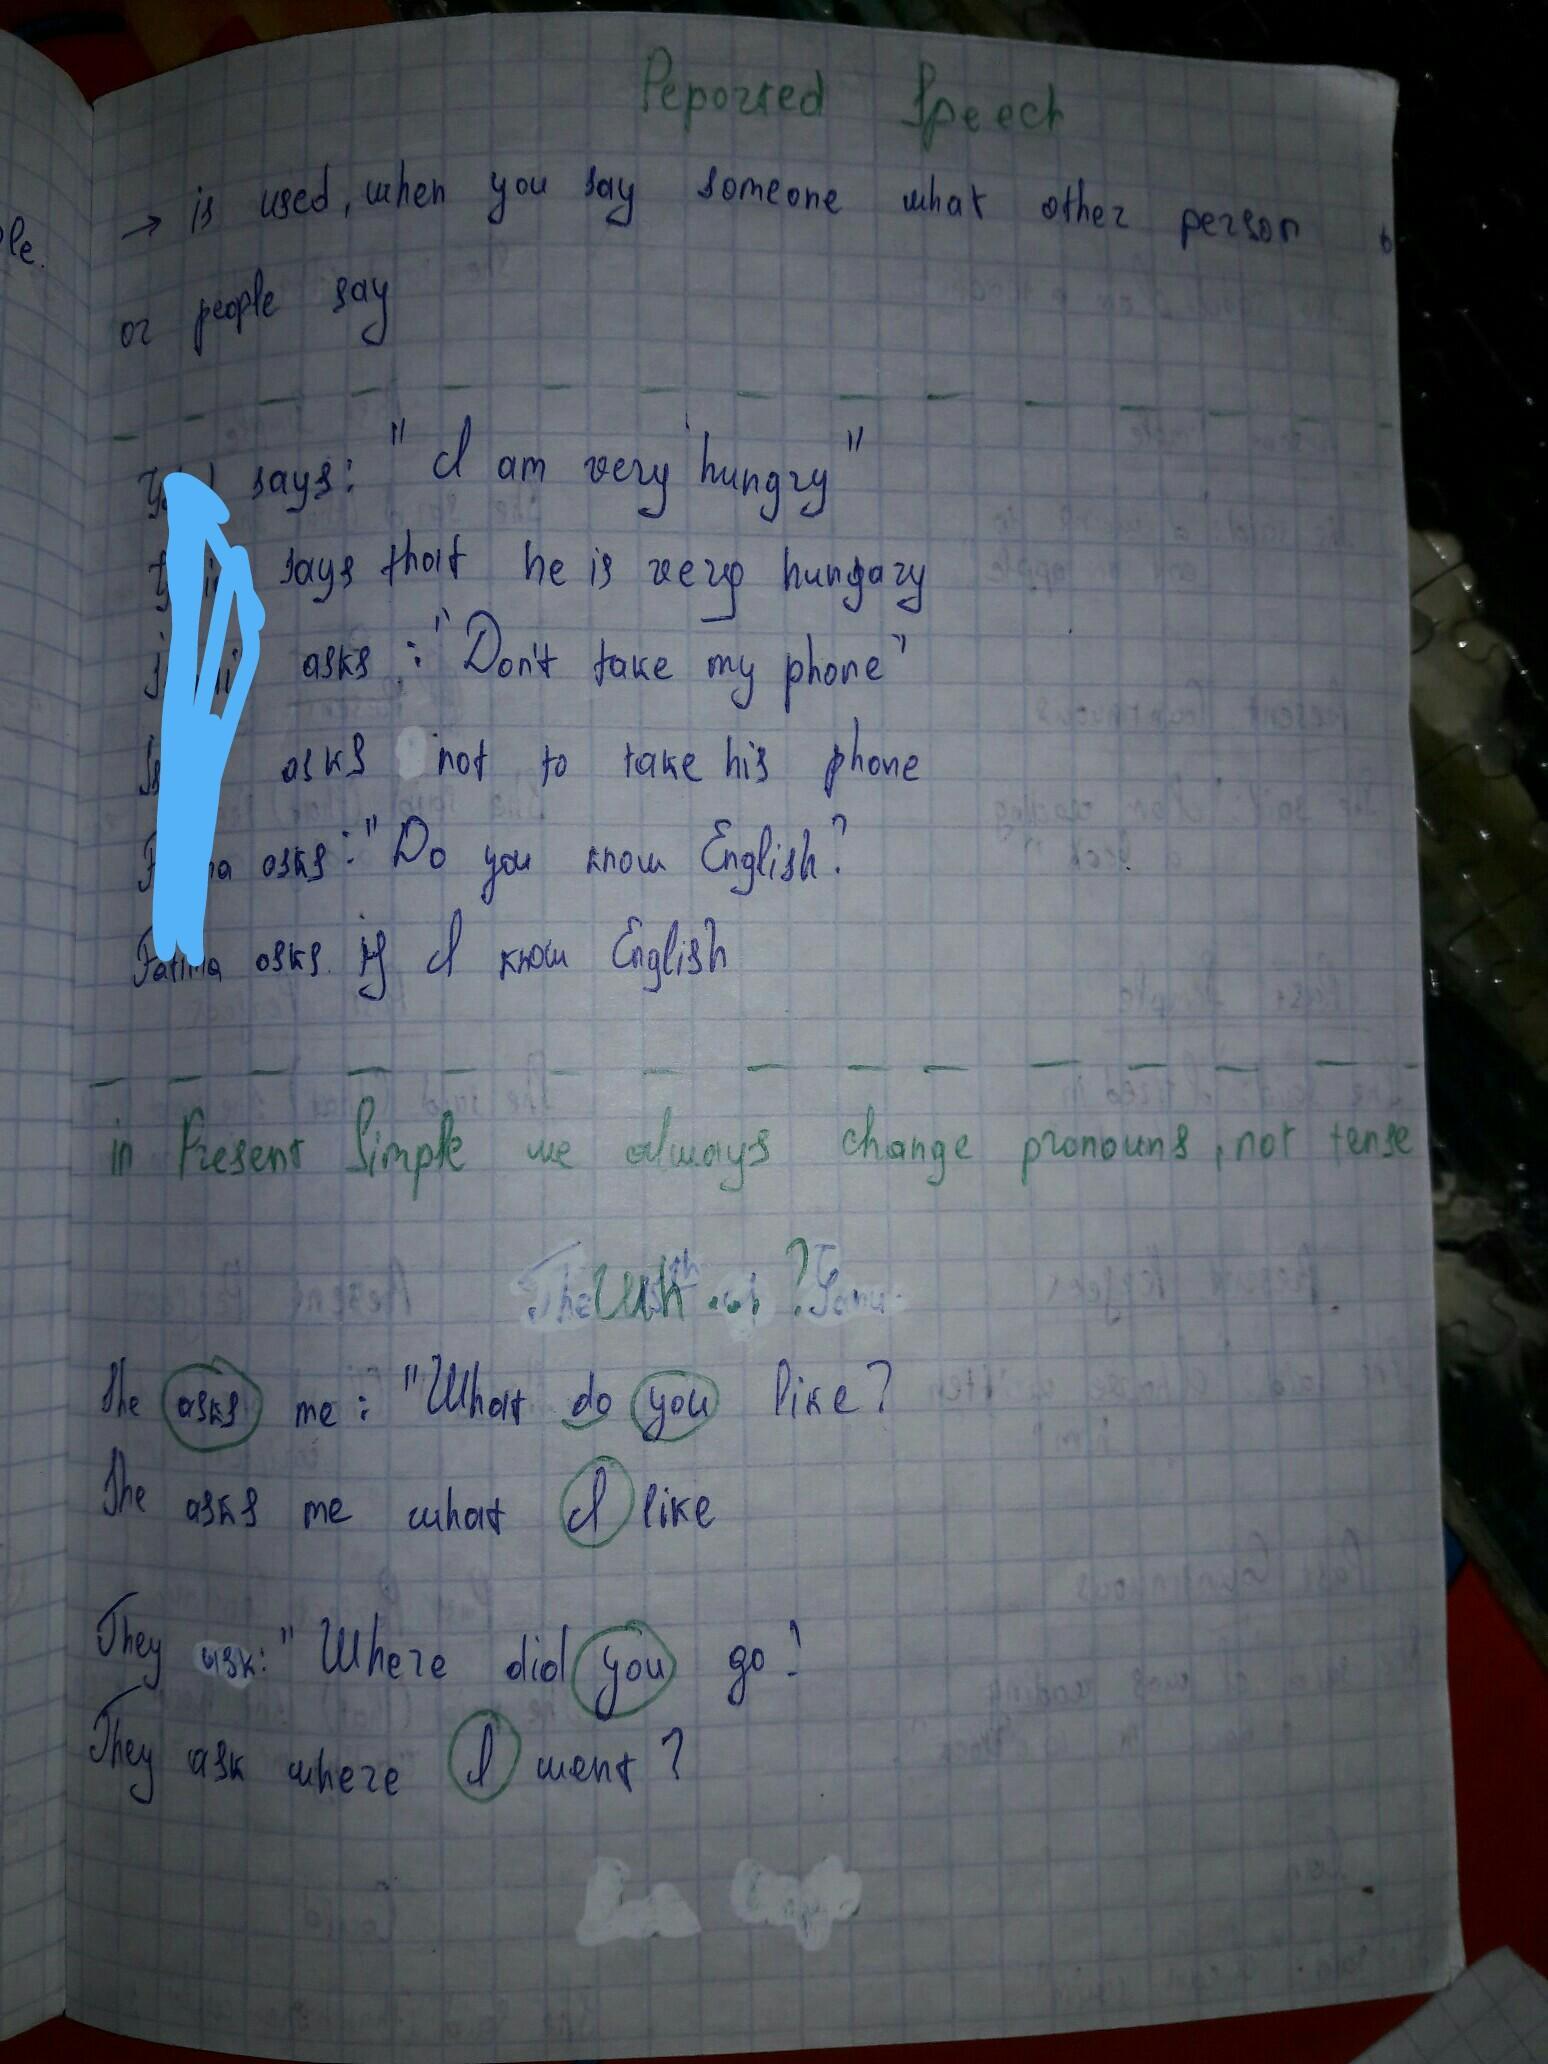 Reported Speech
→ is used, when you say someone what other person
or people say
says: " I am very hungry"
says that he is very hungary
asks : "Don't take my phone"
asks not to take his phone
asks: "Do you know English?
Fatima asks if I know English
in Present Simple we always change pronouns, not tense
Wh ?
She asks me : "What do you like?
She asks me what I like
They ask: "Where did you go?
They ask where I went?